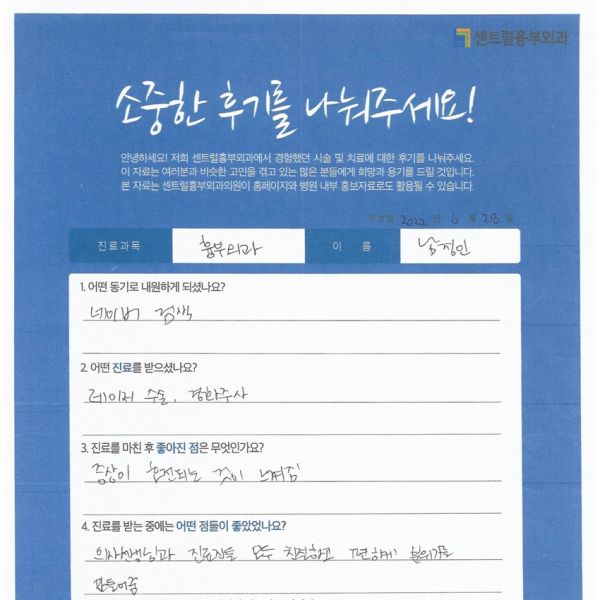 센트럴흉부외과
소중한 후기를 나눠주세요!
안녕하세요! 저희 센트럴흉부외과에서 경험했던 시술 및 치료에 대한 후기를 나눠주세요.
이 자료는 여러분과 비슷한 고민을 겪고 있는 많은 분들에게 희망과 용기를 드릴 것입니다.
본 자료는 센트럴흉부외과의원이 홈페이지와 병원 내부 홍보자료로도 활용될 수 있습니다.
작성일 2022 년 6 월 28 일
진료과목 흉부외과 이 름 남정인
1. 어떤 동기로 내원하게 되셨나요?
네이버 검색
2. 어떤 진료를 받으셨나요?
레이저 수술, 경화주사
3. 진료를 마친 후 좋아진 점은 무엇인가요?
증상이 호전되는 것이 느껴짐
4. 진료를 받는 중에는 어떤 점들이 좋았었나요?
의사선생님과 진료진들 모두 친절하고 편하게 분위기를
만들어줌